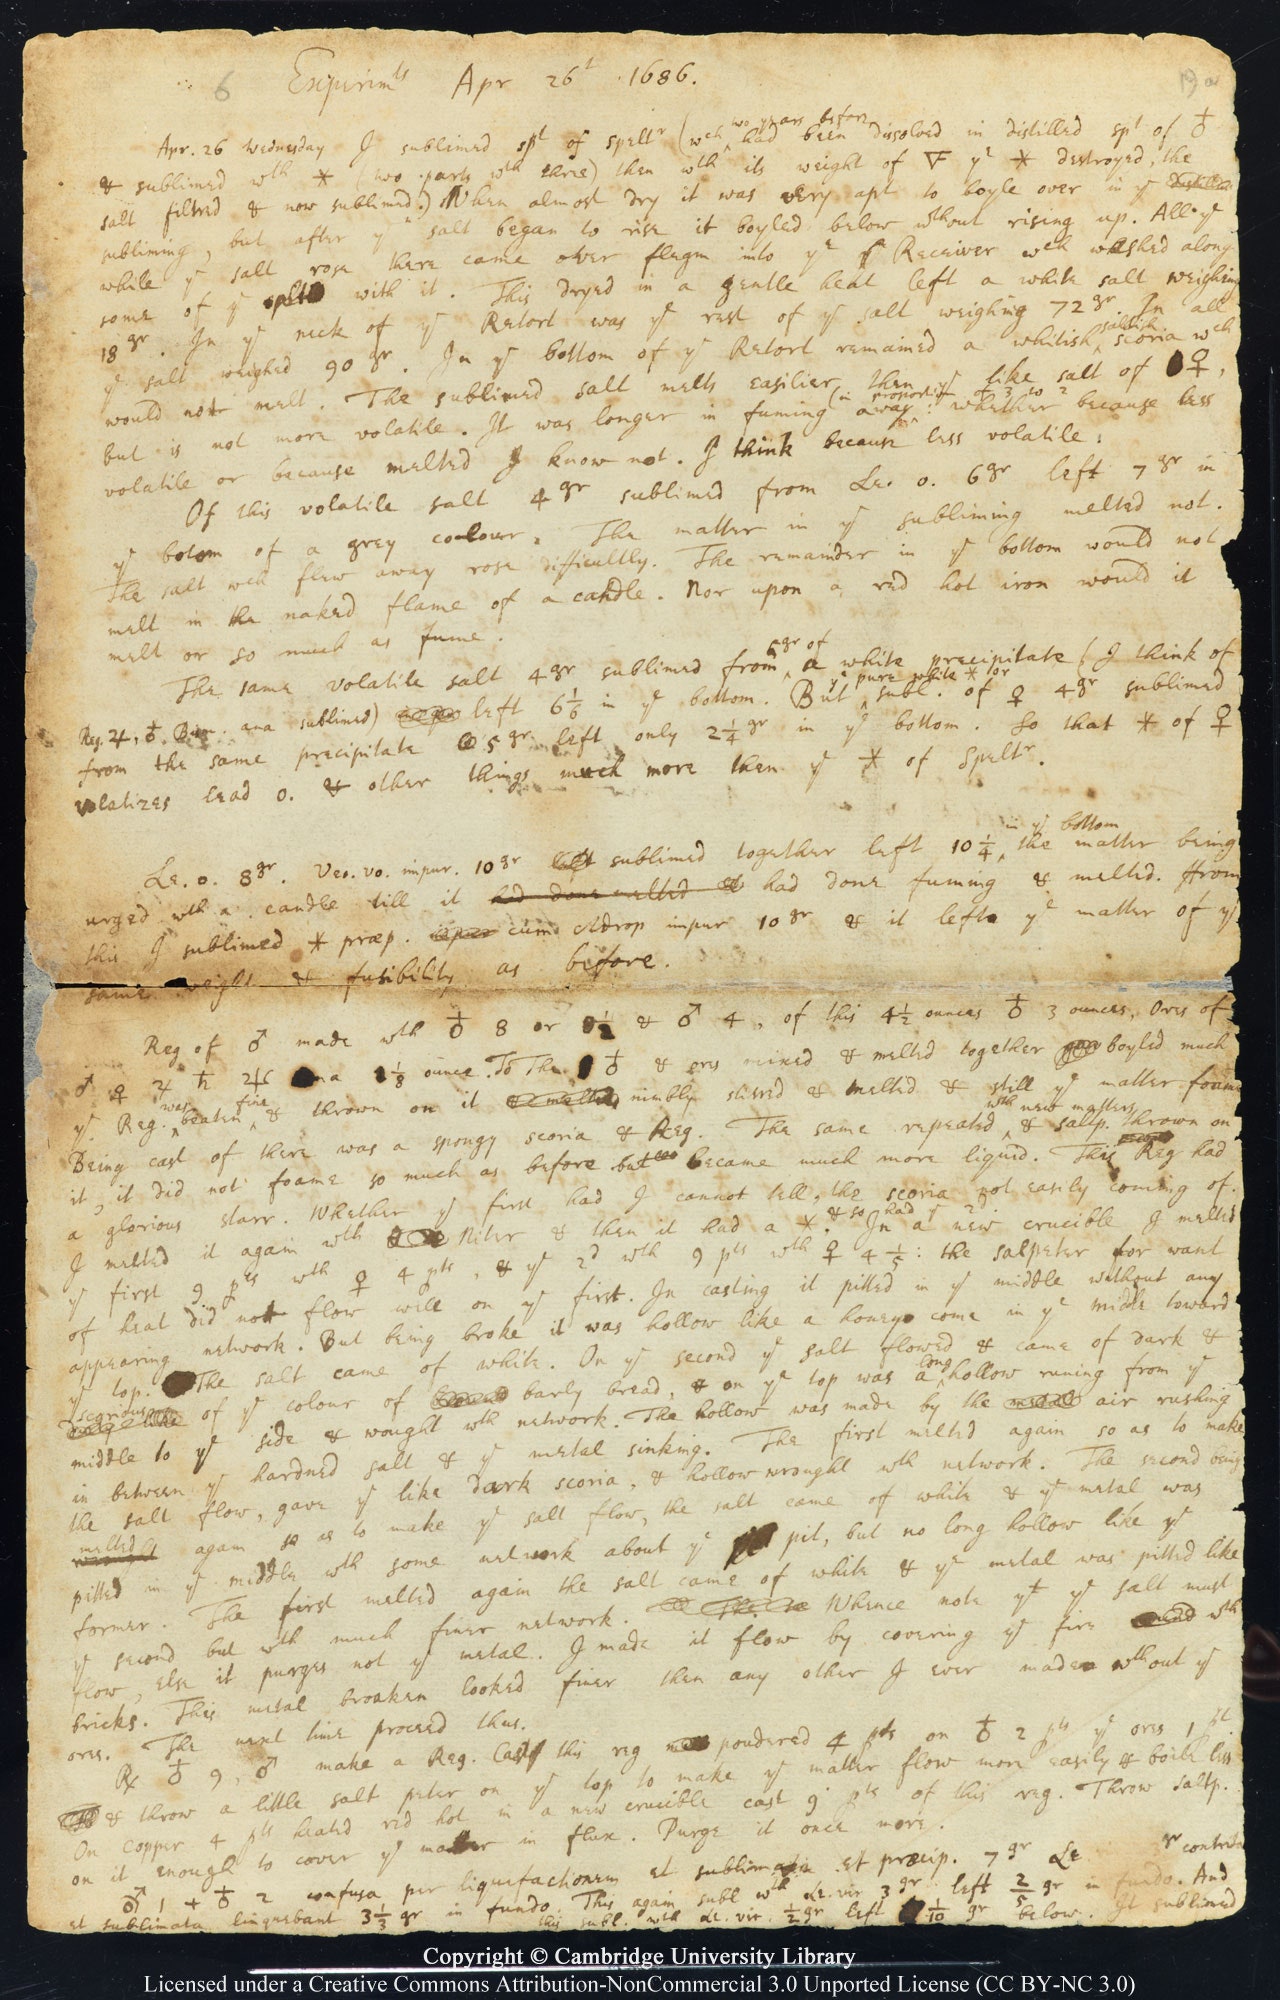 6 Experimts Apr 26t 1686.
Apr. 26 Wednesday I sublimed spt of speltr (wch two years before had been dissolved in distilled spt of ♁
& sublimed wth ✳ (two parts wth three) then wth its weight of 🜄 ye ✳ destroyed, the
salt filtred & now sublimed.) When almost dry it was very apt to boyle over in ye
subliming, but after ye salt began to rise it boyled below wthout rising up. All ye
while ye salt rose there came over flegm into ye Receiver wch washed along
some of ye salt with it. This dryed in a gentle heat left a white salt weighing
18 gr. In ye neck of ye Retort was ye rest of ye salt weighing 72 gr In all
ye salt weighed 90 gr. In ye bottom of ye Retort remained a whitish saltish scoria wch
would not melt. The sublimed salt melts easilier then ye like salt of ♀,
but is not more volatile. It was longer in fuming away (in proportion 3 to 2 whether because less
volatile or because melted I know not. I think because less volatile.
Of this volatile salt 4gr sublimed from Le. o. 6gr left 7 gr in
ye botom of a grey colour. The matter in ye subliming melted not.
The salt wch flew away rose difficultly. The remainder in ye bottom would not
melt in the naked flame of a candle. Nor upon a red hot iron would it
melt or so much as fume.
The same volatile salt 4gr sublimed from 5gr of a white precipitate (I think of
Reg. ♃, ♁. ana sublimed) left 6 1/6 in ye bottom. But ye pure white ✳ or subl. of ♀ 4gr sublimed
from the same precipitate 5 gr left only 2 1/4 gr in ye bottom. So that ✳ of ♀
volatizes lead o. & other things much more then ye ✳ of Speltr.
Le. o. 8gr. Veo. vo. impur. 10gr sublimed together left 10 1/4 in ye bottom, the matter being
urged wth a candle till it had done melted & had done fuming & melted. From
this I sublimed ✳ præp. cum Adrop impur 10 gr & it left ye matter of ye
same weight & fusibility as before.
Reg of ♂ made wth ♁ 8 or 8 1/2 & ♂ 4, of this 4 1/2 ounces ♁ 3 ounces, Ores of
♂ ♀ ♃ ♄ ana 1 1/8 ounce. To The ♁ & ores mixed & melted together boyled much
ye Reg. was beaten fine & thrown on it & melted nimbly stirred & melted & still ye matter foamd
Being cast of there was a spongy scoria & Reg. The same repeated wth new matters & saltp. thrown on
it, it did not foame so much as before but became much more liquid. This Reg had
a glorious starr. Whether ye first had I cannot tell, the scoria not easily coming of.
I melted it again wth Niter & then it had a ✳. & so had ye 2d In a new crucible I melted
ye first 9 pts wth ♀ 4 pts, & ye 2d wth 9 pts wth ♀ 4 1/5: the salpeter for want
of heat did not flow well on ye first. In casting it pitted in ye middle without any
appearing network. But being broke it was hollow like a honey come in ye middle toward
ye top. The salt came of white. On ye second ye salt flowed & came of dark &
scorious like of ye colour of barly bread, & on ye top was a long hollow runing from ye
middle to ye side & wrought wth network. The hollow was made by the air rushing
in between ye hardned salt & ye metal sinking. The first melted again so as to make
the salt flow, gave ye like dark scoria, & hollow wrought wth network. The second being
melted again so as to make ye salt flow, the salt came of white & ye metal was
pitted in ye middle wth some network about ye pit, but no long hollow like ye
former. The first melted again the salt came of white & ye metal was pitted like
ye second but wth much finer network. Whence note yt ye salt must
flow, else it purges not ye metal. I made it flow by covering ye fire wth
bricks. This metal broaken looked finer then any other I ever made wthout ye
ores. The next time proceed thus.
℞ ♁ 9, ♂ make a Reg. Cast this reg poudered 4 pts on ♁ 2 pts ye ores 1 pt
& throw a little salt peter on ye top to make ye matter flow more easily & boile less
On Copper 4 pts heated red hot in a new crucible cast 9 pts of this reg. Throw saltp.
on it enough to cover ye matter in flux. Purge it once more.
♂ 1 + ♁ 2 confusa per liquefactionem et sublimatio et præcip. 7 gr Le gr contrita
et sublimata linquebant 3 1/3 gr in fundo. This again subl wth Le. vir 3 gr left 2/5 gr in fundo. And
this subl. wth Le. vir. 1/2 gr left 1/10 gr below. It sublimed
Copyright © Cambridge University Library
Licensed under a Creative Commons Attribution-NonCommercial 3.0 Unported License (CC BY-NC 3.0)